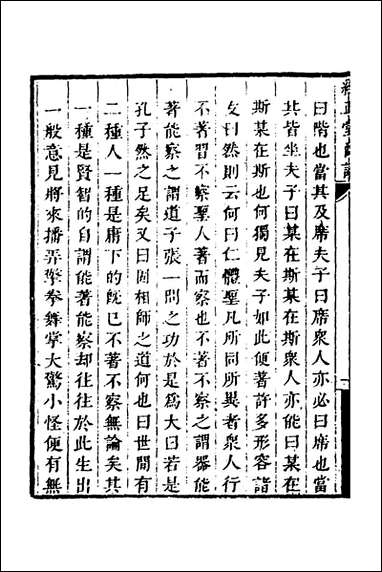 曰階也當其及席夫子曰席衆人亦必曰席也當
其皆坐夫子曰某在斯某在斯衆人亦能曰某在
斯某在斯也何獨見夫子如此便著許多形容詣
攵曰然則云何曰仁體聖凡所同所異者衆人行
不著習不察聖人著而察也不著不察之謂器能
著能察之謂道子張一問之功於是爲大曰若是
孔子然之足矣又曰固相師之道何也曰世間有
二種人一種是庸下的旣已不著不察無論矣其
一種是賢智的自謂能著能察却往往於此生出
一般意見將來播弄擎拳舞掌大驚小怪便有無